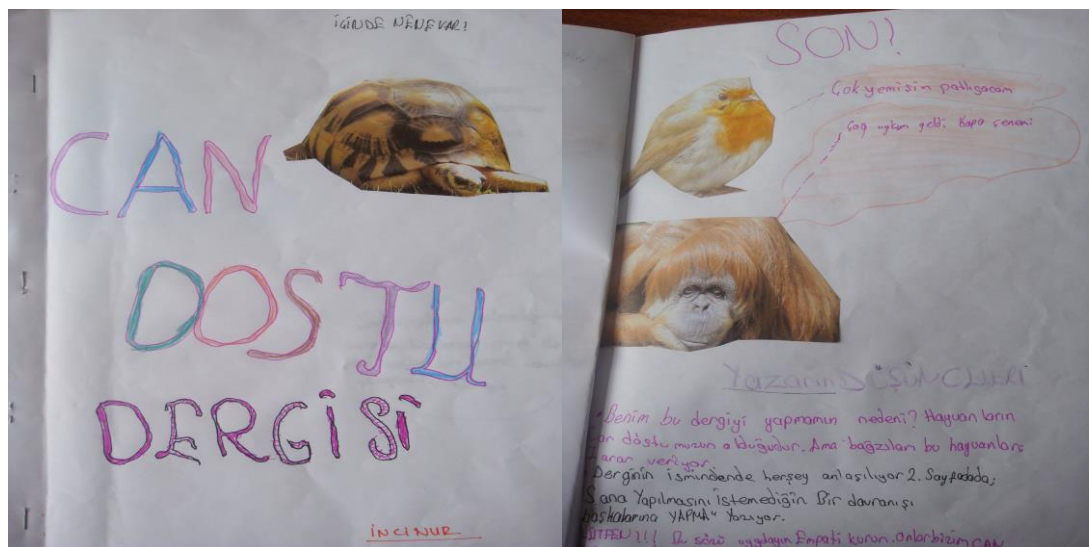 İÇİNDE NENEVAR?
CAN
DOSTU
DERGİSİ
İNCİNUR
SON!
Çok yemişin patlıyacam
uykum geldi. Kapa çeneni
Yazarın DÜŞÜNCLERİ
Benim bu dergiyi yapmamın nedeni? Hayvanların
dostumuzun olduğudur. Ama bağzıları bu hayvanlara
zarar veriyor.
Derginin ismindende herşey anlaşılıyor 2. Sayfadada;
Sana Yapılmasını istemediğin Bir davranışı
başkalarına YAPMA" Yazıyor.
LÜTFEN!!! sözü uygulayın Empati kurun. Onlar bizim CAN